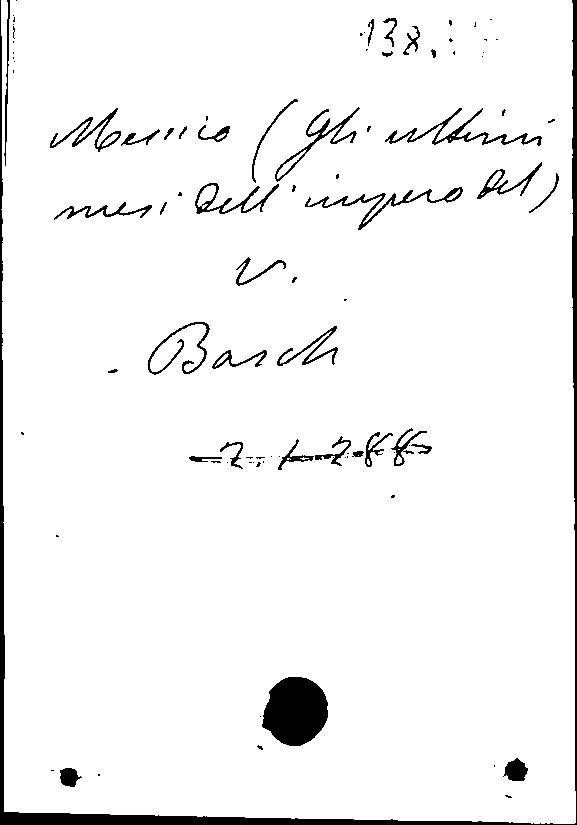 138.
Messico (Gli ultimi
mesi dell'impero del)
V.
- Basch